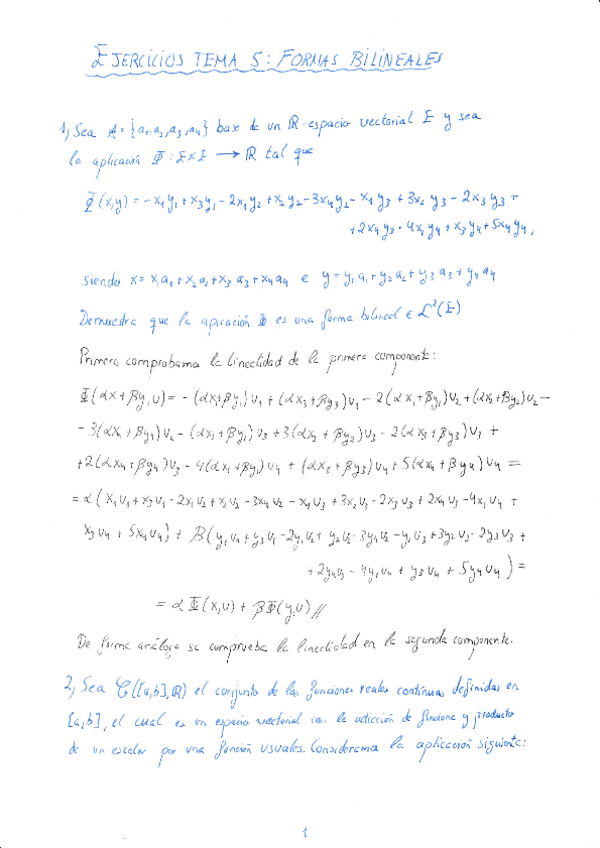 EJERCICIOS TEMA 5: FORMAS BILINEALES
1) Sea A = {a₁,a₂,a₃,a₄} base de un ℝ-espacio vectorial E y sea
la aplicación Φ : E×E → ℝ tal que
Φ(x,y) = -x₁y₁ + x₃y₁ - 2x₁y₂ + x₂y₂ - 3x₄y₂ - x₁y₃ + 3x₂y₃ - 2x₃y₃ +
+2x₄y₃ - 4x₁y₄ + x₃y₄ + 5x₄y₄,
siendo x = x₁a₁ + x₂a₂ + x₃a₃ + x₄a₄ e y = y₁a₁ + y₂a₂ + y₃a₃ + y₄a₄
Demuestra que la apicación Φ es una forma bilineal ∈ ℒ²(E)
Primero comprobamos la linealidad de la primera componente:
Φ(αx + βy, v) = -(αx₁+βy₁)v₁ + (αx₃+βy₃)v₁ - 2(αx₁+βy₁)v₂ + (αx₂+βy₂)v₂ -
-3(αx₄+βy₄)v₂ - (αx₁+βy₁)v₃ + 3(αx₂+βy₂)v₃ - 2(αx₃+βy₃)v₃ +
+2(αx₄+βy₄)v₃ - 4(αx₁+βy₁)v₄ + (αx₃+βy₃)v₄ + 5(αx₄+βy₄)v₄ =
= α(x₁v₁ + x₃v₁ - 2x₁v₂ + x₂v₂ - 3x₄v₂ - x₁v₃ + 3x₂v₃ - 2x₃v₃ + 2x₄v₃ - 4x₁v₄ +
x₃v₄ + 5x₄v₄) + β(y₁v₁ + y₃v₁ - 2y₁v₂ + y₂v₂ - 3y₄v₂ - y₁v₃ + 3y₂v₃ - 2y₃v₃ +
+2y₄v₃ - 4y₁v₄ + y₃v₄ + 5y₄v₄) =
= αΦ(x,v) + βΦ(y,v) //
De forma análoga se comprueba la linealidad en la segunda componente.
2) Sea C([a,b],ℝ) el conjunto de las funciones reales continuas definidas en
[a,b], el cual es un espacio vectorial con la adicción de funciones y producto
de un escalar por una función usuales. Consideramos la aplicación siguiente:
1